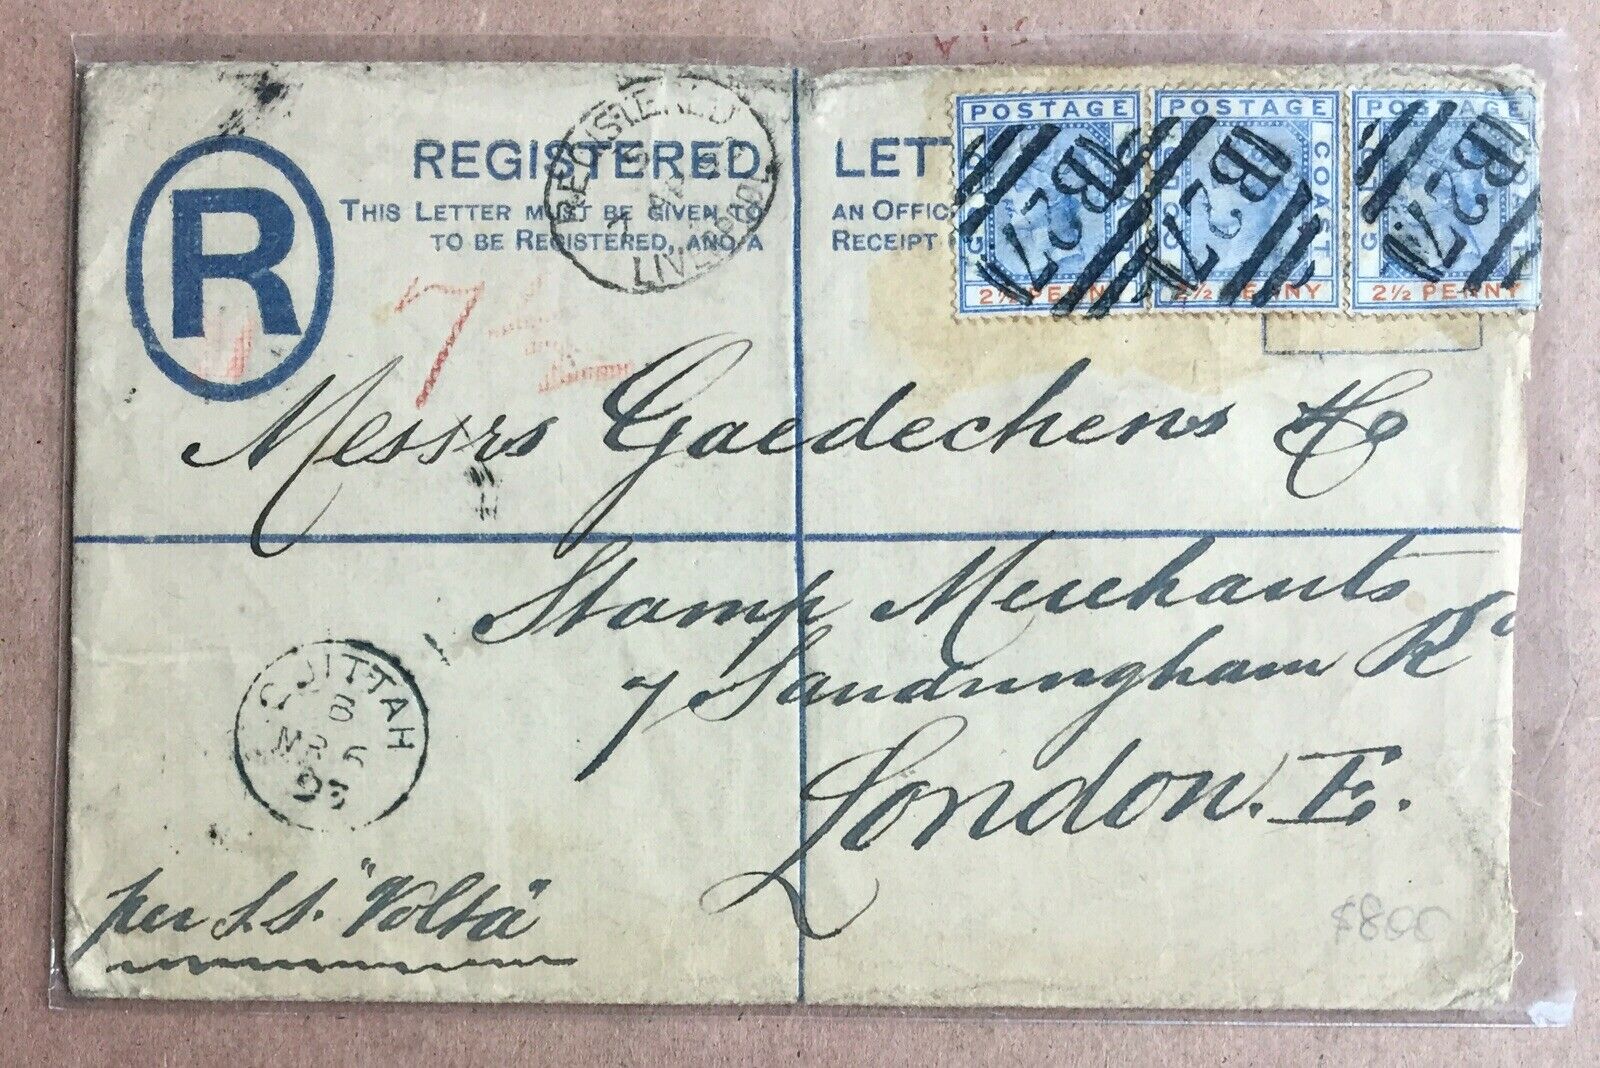 R
REGISTERED LETT
THIS LETTER MUST BE GIVEN TO AN OFFIC
TO BE REGISTERED, AND A RECEIPT
REGISTERED
LIVERPOOL
POSTAGE
GOLD COAST
2½ PENNY
B27
POSTAGE
GOLD COAST
2½ PENNY
B27
POSTAGE
GOLD COAST
2½ PENNY
B27
7½
Messrs Gaedechens & Co
Stamp Merchants
7 Sandringham Rd
London. E.
QUITTAH
MR
93
per s.s. "Volta"
$800